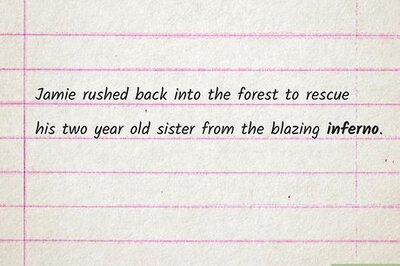 Jamie rushed back into the forest to rescue
his two year old sister from the blazing inferno.